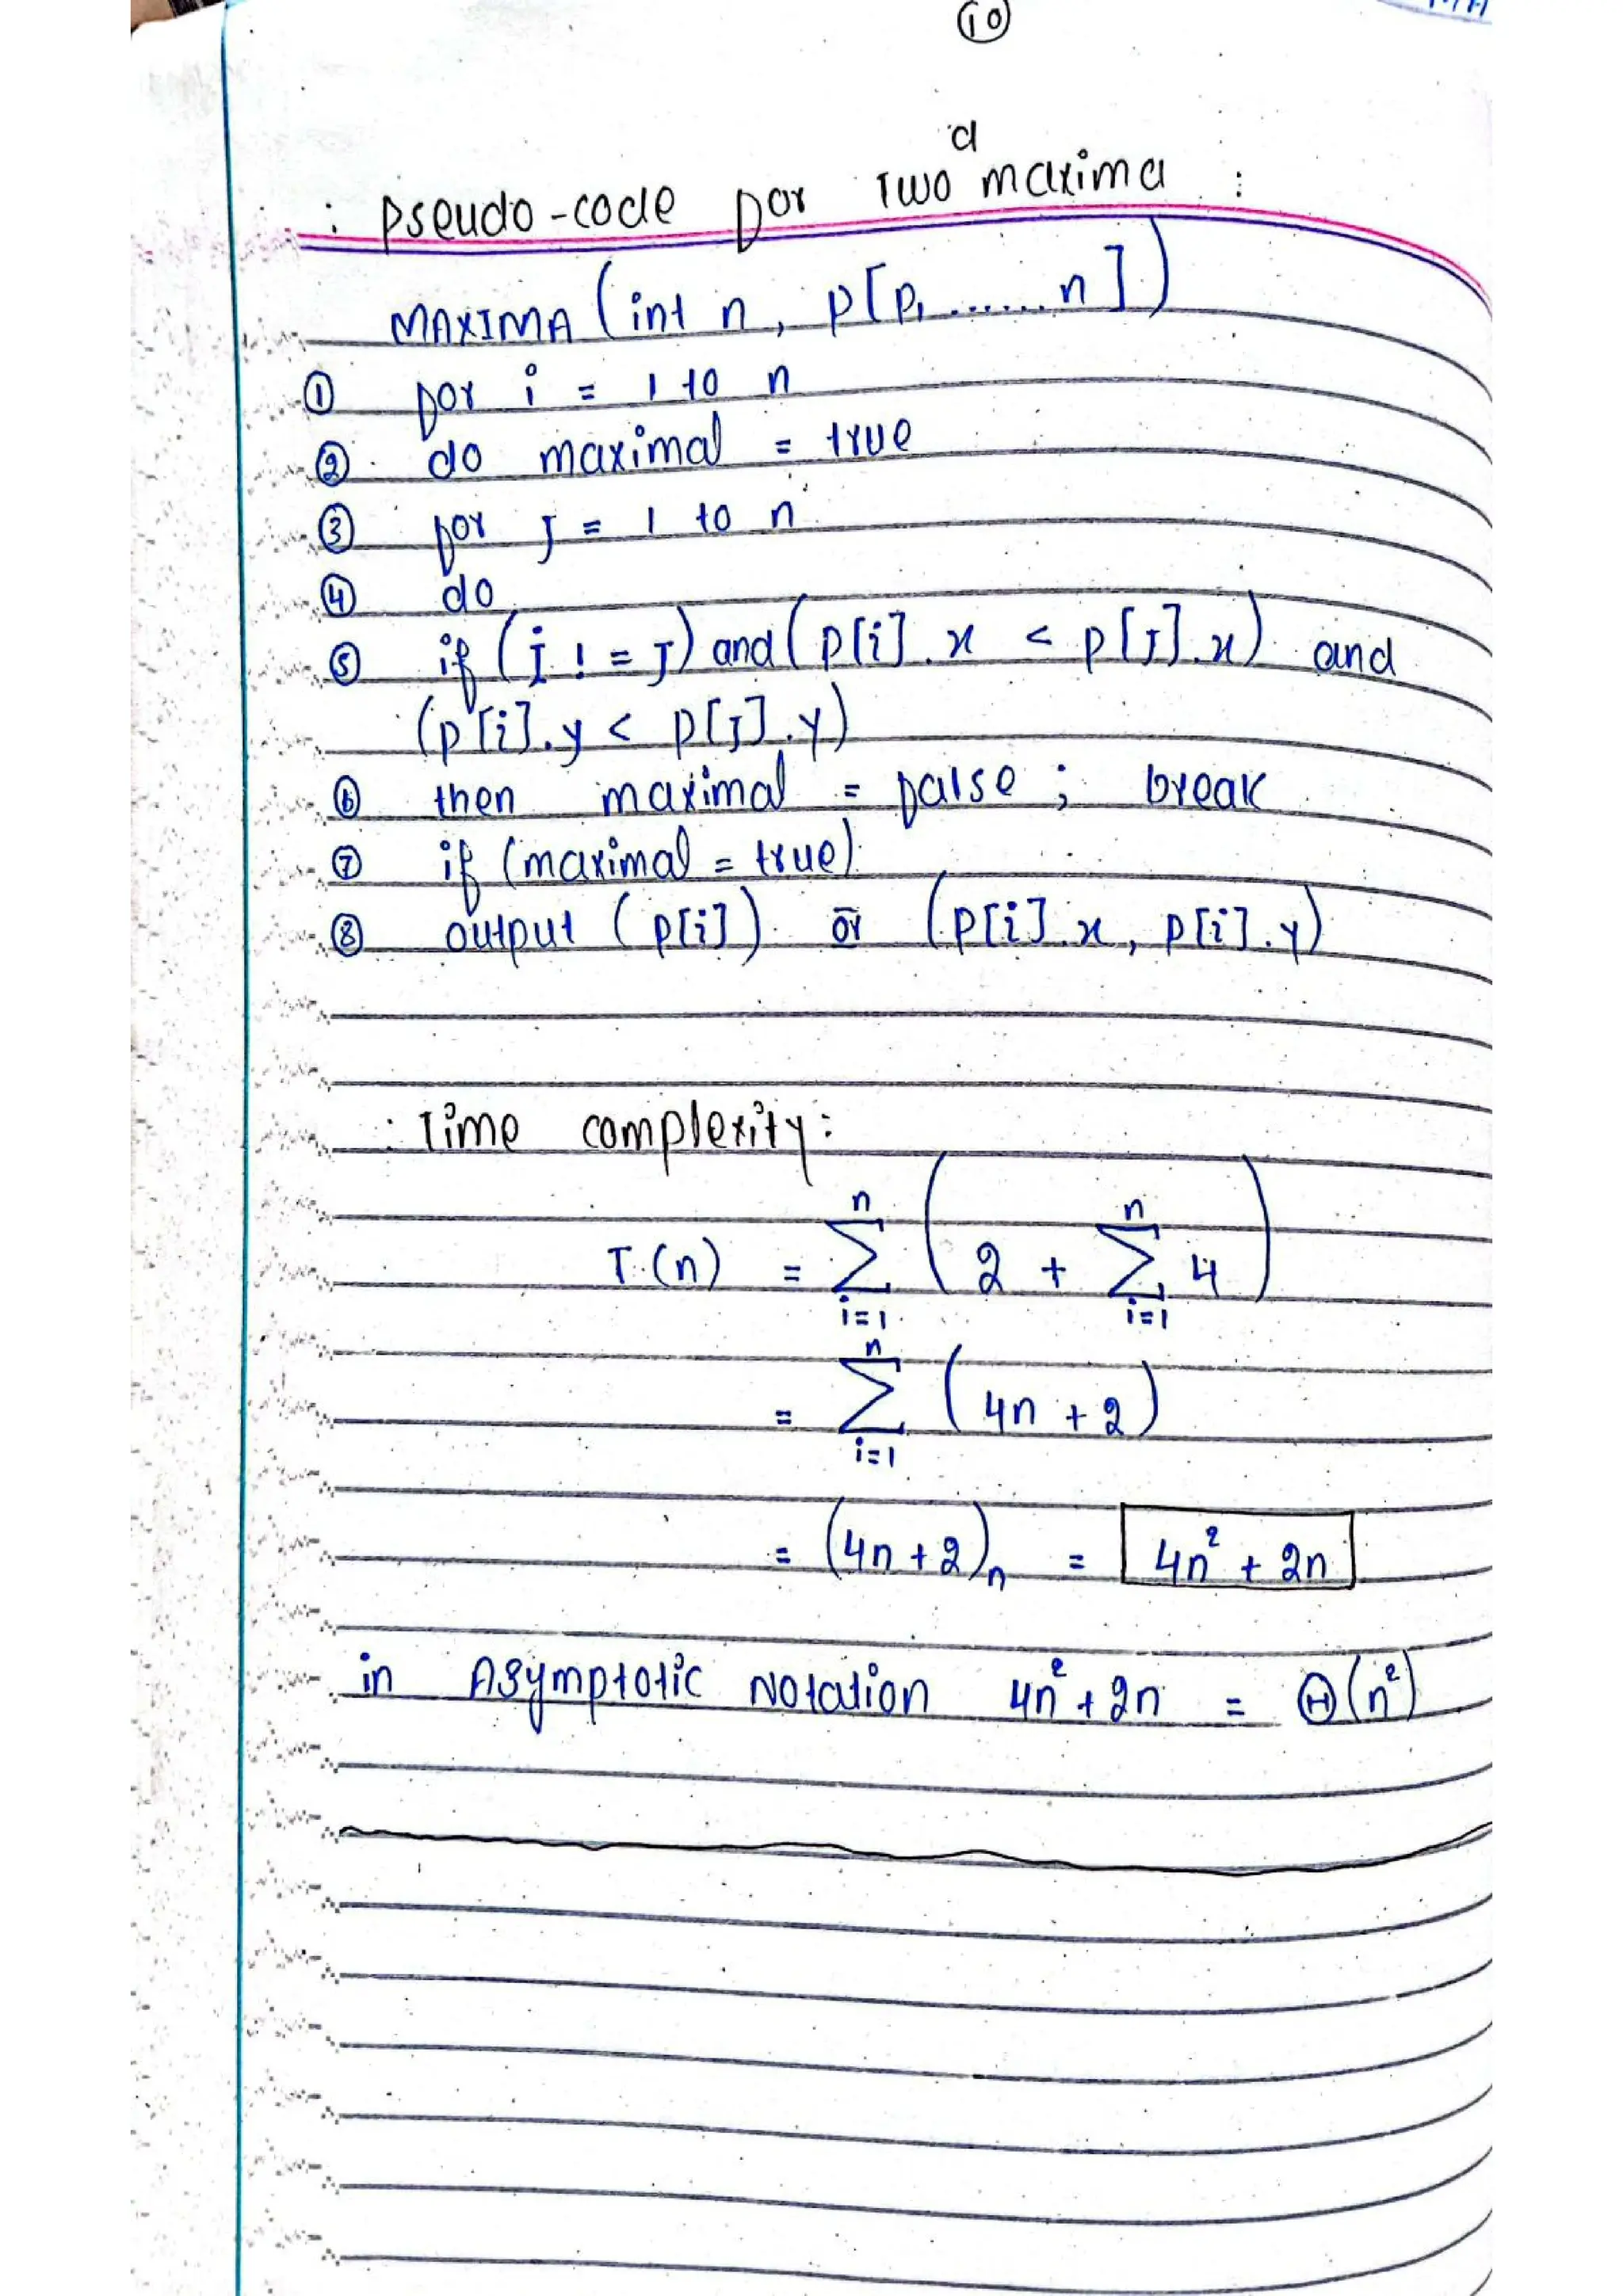 10
: Pseudo-code for Two d maxima :
MAXIMA (int n, P[P1 ....... n])
① for i = 1 to n
② do maximal = true
③ for J = 1 to n
④ do
⑤ if (i != J) and (P[i].x < P[J].x) and
(P[i].y < P[J].y)
⑥ then maximal = false ; break
⑦ if (maximal = true)
⑧ output (P[i]) or (P[i].x, P[i].y)
: Time complexity :
T(n) = n ∑ i=1 ( 2 + n ∑ i=1 4 )
= n ∑ i=1 ( 4n + 2 )
= (4n + 2)n = 4n² + 2n
in Asymptotic Notation 4n² + 2n = Θ(n²)